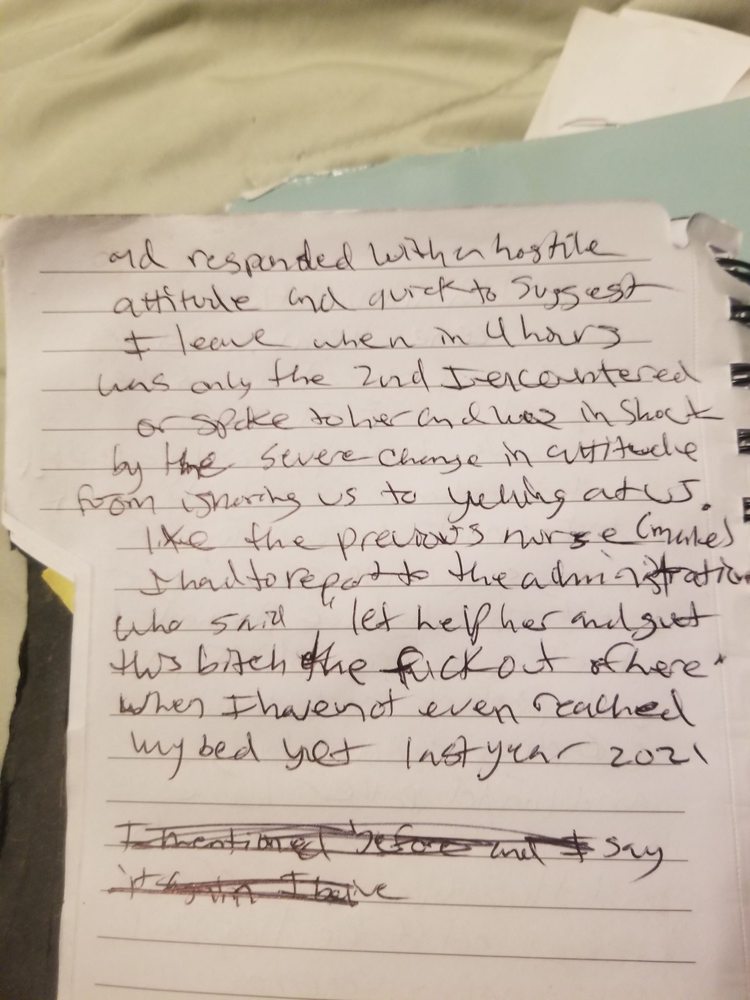 and responded with a hostile
attitude and quick to suggest
I leave when in 4 hours
was only the 2nd I encountered
or spoke to her and was in shock
by the severe change in attitude
from ignoring us to yelling at us.
like the previous nurse (
I had to report to the administration
who said "let help her and get
this bitch the fuck out of here"
when I have not even reached
my bed yet last year 2021
I mentioned before and I say
it again I